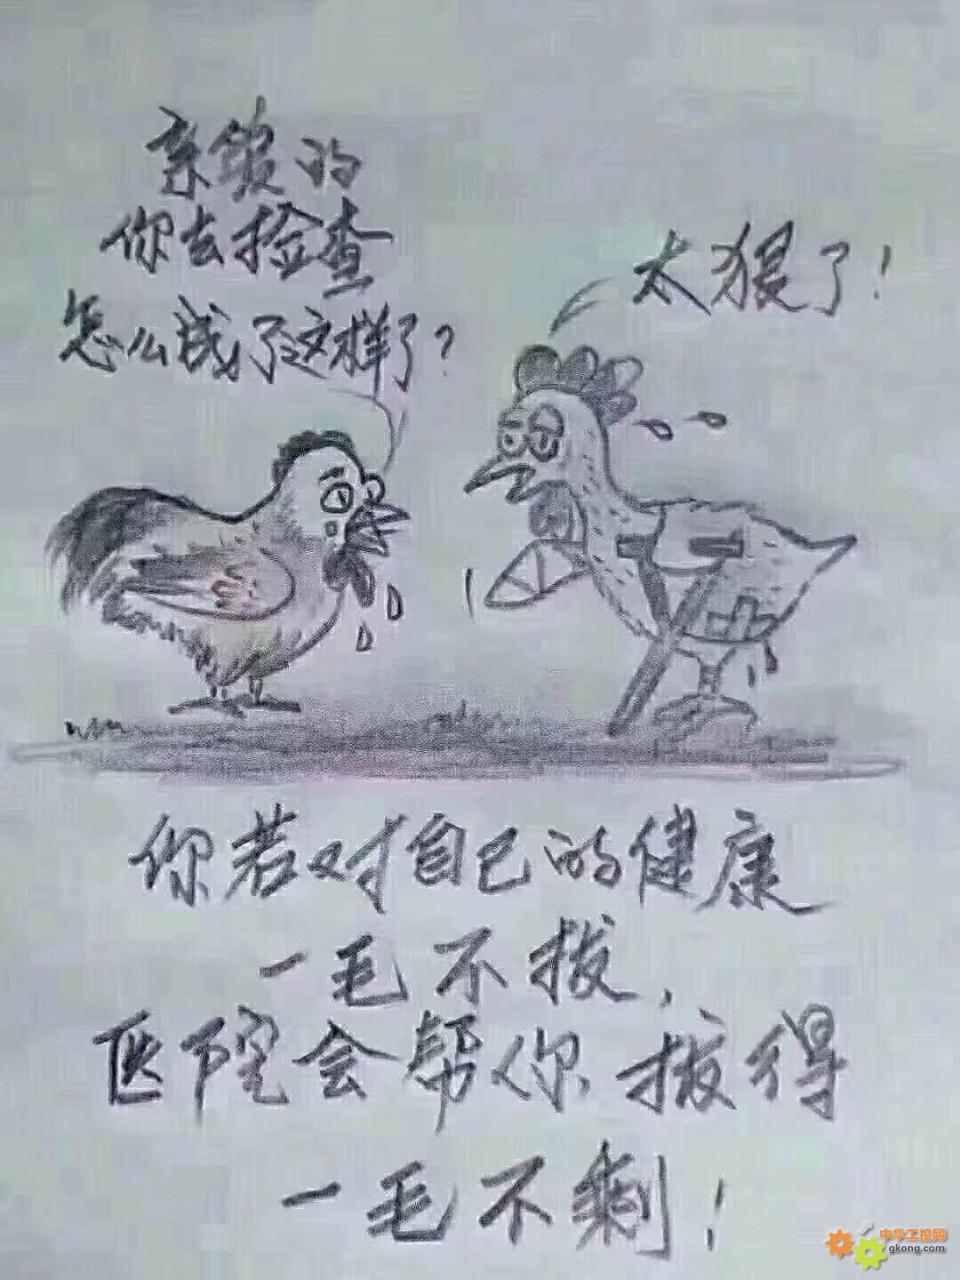 亲的
你去检查
怎么成了这样了?
太狠了!
你若对自己的健康
一毛不拔,
医院会帮你拔得
一毛不剩!
中华工控网
gkong.com